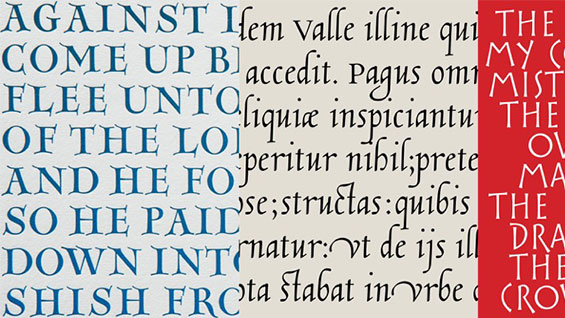 AGAINST
COME UP B
FLEE UNTO
OF THE LO
AND HE FO
SO HE PAID
DOWN INTO
SHISH FRO
dem Valle illine qui
accedit. Pagus omn
liquiæ inspiciantu
peritur nihil; prete
ose; structas: quibis
rnatur: vt de ijs ill
ota stabat in vrbe c
THE
MY CO
MIST
THE
OV
MA
THE
DRA
THE
CROW